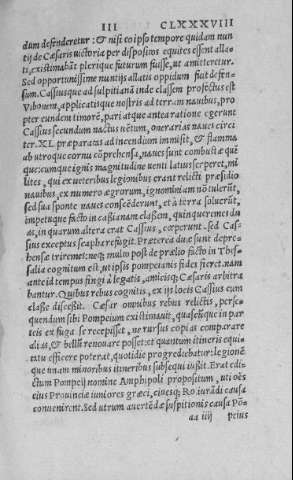 III CLXXXVIII
dum defenderetur: & nisi eo ipso tempore quidam nun
tij de Cæsaris uictoria per dispositos equites essent alla-
ti, existimabāt plerique futurum fuisse, ut amitteretur.
Sed opportunissime nuntijs allatis oppidum fuit defen-
sum. Cassiusque ad sulpitianā inde classem profectus est
Vibonem, applicatisque nostris ad terram nauibus, pro
pter eundem timorē, pari atque antea ratione egerunt
Cassius secundum nactus uētum, onerarias naues circi
ter .XL. præparatas ad incendium immisit, & flamma
ab utroque cornu cōprehensa, naues sunt combustæ quī
que: cumque ignis magnitudine uenti latius serperet, mi
lites, qui ex ueteribus legionibus erant relicti præsidio
nauibus, ex numero ægrorum, ignominiam nō tulerūt,
sed sua sponte naues conscēderunt, et à terra soluerūt,
impetuque facto in cassianam classem, quinqueremes du
as, in quarum altera erat Cassius, cœperunt. sed Cas-
sius exceptus scapha refugit. Præterea duæ sunt depre-
hensæ triremes: neque multo post de prælio facto in Thes
salia cognitum est, ut ipsis pompeianis fides fieret. nam
ante id tempus fingi à legatis, amicisque Cæsaris arbitra
bantur. Quibus rebus cognitis, ex ijs locis Cassius cum
classe discessit. Cæsar omnibus rebus relictis, perse-
quendum sibi Pompeium existimauit, quascunque in par
teis ex fuga se recepisset, ne rursus copias comparare
alias, & bellū renouare posset: et quantum itineris equi-
tatu efficere poterat, quotidie progrediebatur: legionē
que unam minoribus itineribus subsequi iussit. Erat edi-
ctum Pompeij nomine Amphipoli propositum, uti oēs
eius Prouinciæ iuniores græci, ciuesque Ro. iurādi causa
conuenirent. Sed utrum auertēdæ suspitionis causa Pō-
aa iiij peius